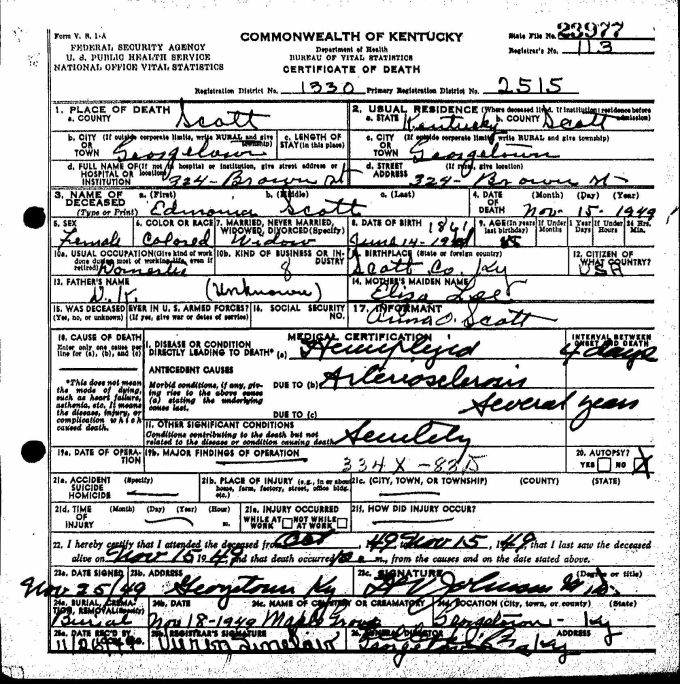 Form V. S. 1-A
FEDERAL SECURITY AGENCY
U. S. PUBLIC HEALTH SERVICE
NATIONAL OFFICE VITAL STATISTICS
COMMONWEALTH OF KENTUCKY
Department of Health
BUREAU OF VITAL STATISTICS
CERTIFICATE OF DEATH
State File No. 23977
Registrar's No. 113
Registration District No. 1330 Primary Registration District No. 2515
1. PLACE OF DEATH
a. COUNTY Scott
2. USUAL RESIDENCE (Where deceased lived. If institution: residence before admission)
a. STATE Kentucky b. COUNTY Scott
b. CITY (If outside corporate limits, write RURAL and give township) OR TOWN Georgetown
c. LENGTH OF STAY (in this place)
c. CITY (If outside corporate limits, write RURAL and give township) OR TOWN Georgetown
d. FULL NAME OF (If not in hospital or institution, give street address or location) HOSPITAL OR INSTITUTION 324- Brown St
d. STREET ADDRESS (If rural, give location) 324- Brown St
3. NAME OF DECEASED (Type or Print)
a. (First) b. (Middle) c. (Last)
Edmonia Scott
4. DATE OF DEATH (Month) (Day) (Year)
Nov 15 - 1949
5. SEX Female
6. COLOR OR RACE Colored
7. MARRIED, NEVER MARRIED, WIDOWED, DIVORCED (Specify) Widow
8. DATE OF BIRTH June 14
9. AGE (In years last birthday) If Under 1 Year Months Days If Under 24 Hrs. Hours Min.
10a. USUAL OCCUPATION (Give kind of work done during most of working life, even if retired) Domestic
10b. KIND OF BUSINESS OR INDUSTRY
11. BIRTHPLACE (State or foreign country) Scott Co. Ky
12. CITIZEN OF WHAT COUNTRY? USA
13. FATHER'S NAME D. K. (Unknown)
14. MOTHER'S MAIDEN NAME Eliza
15. WAS DECEASED EVER IN U. S. ARMED FORCES? (Yes, no, or unknown) (If yes, give war or dates of service)
16. SOCIAL SECURITY NO.
17. INFORMANT Anna O. Scott
18. CAUSE OF DEATH
Enter only one cause per line for (a), (b), and (c)
*This does not mean the mode of dying, such as heart failure, asthenia, etc. It means the disease, injury, or complication which caused death.
MEDICAL CERTIFICATION
INTERVAL BETWEEN ONSET AND DEATH
I. DISEASE OR CONDITION DIRECTLY LEADING TO DEATH* (a) Hemiplegia 4 days
ANTECEDENT CAUSES
Morbid conditions, if any, giving rise to the above cause (a) stating the underlying cause last.
DUE TO (b) Arteriosclerosis
Several years
DUE TO (c)
II. OTHER SIGNIFICANT CONDITIONS
Conditions contributing to the death but not related to the disease or condition causing death. Senility
19a. DATE OF OPERATION
19b. MAJOR FINDINGS OF OPERATION
334X -83D
20. AUTOPSY? YES NO X
21a. ACCIDENT SUICIDE HOMICIDE (Specify)
21b. PLACE OF INJURY (e.g., in or about home, farm, factory, street, office bldg., etc.)
21c. (CITY, TOWN, OR TOWNSHIP) (COUNTY) (STATE)
21d. TIME OF INJURY (Month) (Day) (Year) (Hour) m.
21e. INJURY OCCURRED WHILE AT WORK NOT WHILE AT WORK
21f. HOW DID INJURY OCCUR?
22. I hereby certify that I attended the deceased from Oct 49 to Nov 15, 1949, that I last saw the deceased
alive on Nov 15 1949 and that death occurred m., from the causes and on the date stated above.
23a. DATE SIGNED Nov 25/49
23b. ADDRESS Georgetown Ky
23c. SIGNATURE Johnson M.D. (Degree or title)
24a. BURIAL, CREMATION, REMOVAL (Specify) Burial
24b. DATE Nov 18-1949
24c. NAME OF CEMETERY OR CREMATORY Maple Grove
24d. LOCATION (City, town, or county) (State) Georgetown - Ky
25a. DATE REC'D BY LOCAL REG.
25b. REGISTRAR'S SIGNATURE Sinclair
26. FUNERAL DIRECTOR ADDRESS